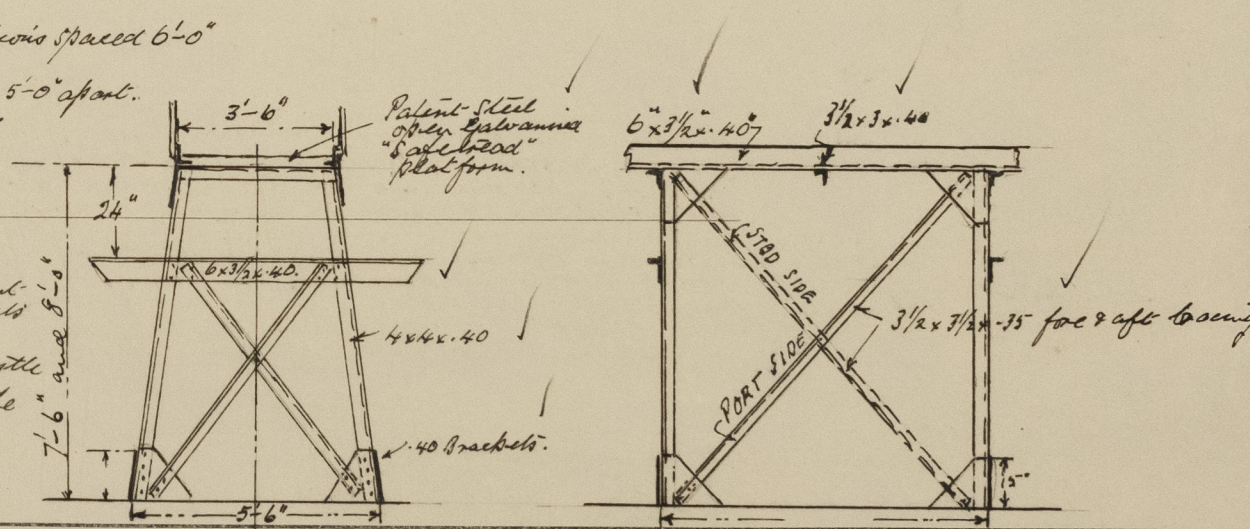 spaced 6'-0"
5'-0" apart.
3'-6"
Patent Steel
open Galvanised
"Safetread"
platform.
24"
7'-6" and 8'-0"
6x3½x.40.
4x4x.40
.40 Brackets.
5'-6"
6"x3½"x.40"
3½x3x.40
STBD SIDE
PORT SIDE
3½x3½x.35 fore & aft bracing